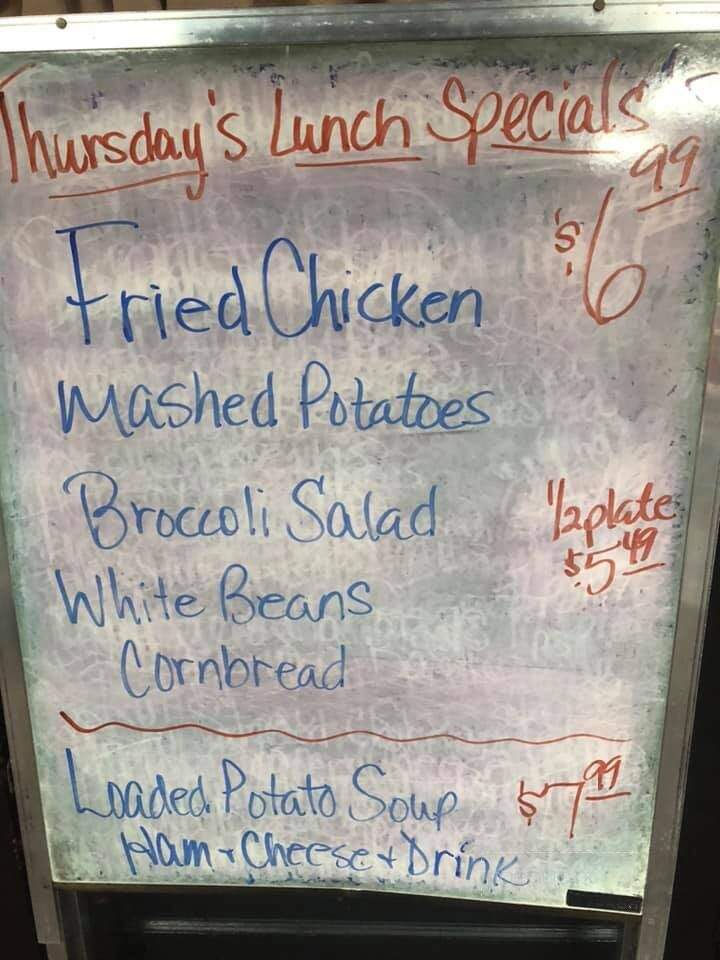 Thursday's Lunch Specials
Fried Chicken $6.99
Mashed Potatoes
Broccoli Salad 1/2 plate
White Beans $5.49
Cornbread
Loaded Potato Soup $7.99
Ham + Cheese + Drink